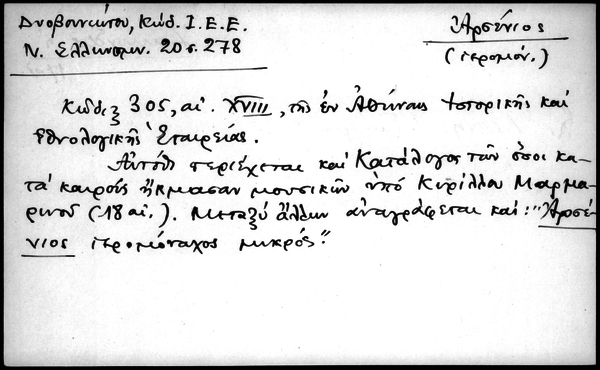 Δυοβουνιώτου, Κώδ. Ι.Ε.Ε.
Ν. Ελληνομν. 20 σ. 278
Ἀρσένιος
(ἱερομόν.)
Κώδιξ 305, αἰ. XVIII, τῆς ἐν Ἀθήναις Ἱστορικῆς καὶ
Ἐθνολογικῆς Ἑταιρείας.
Αὐτόθι περιέχεται καὶ Κατάλογος τῶν ὅσοι κα-
τὰ καιροὺς ἤκμασαν μουσικῶν ὑπὸ Κυρίλλου Μαρμα-
ρινοῦ (18 αἰ.). Μεταξὺ ἄλλων ἀναγράφεται καὶ: "Ἀρσέ-
νιος ἱερομόναχος μικρός".